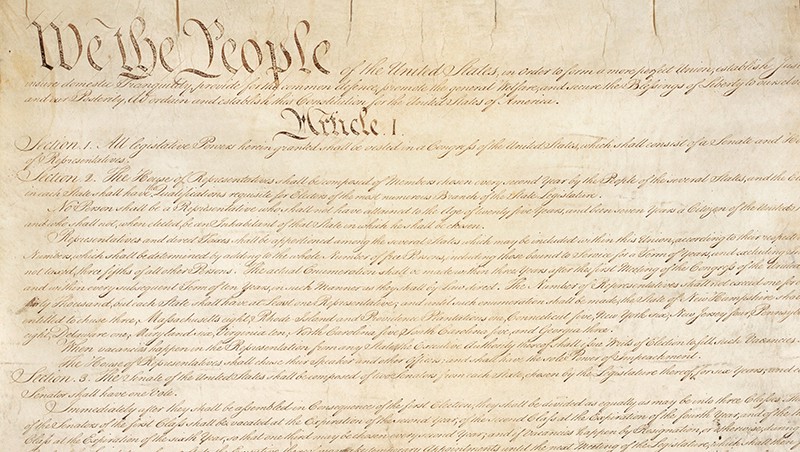 We the People of the United States, in Order to form a more perfect Union, establish Jus
insure domestic Tranquility, provide for the common defence, promote the general Welfare, and secure the Blessings of Liberty to oursel
and our Posterity, do ordain and establish this Constitution for the United States of America.
Article. I.
Section. 1. All legislative Powers herein granted shall be vested in a Congress of the United States, which shall consist of a Senate and Ho
of Representatives.
Section. 2. The House of Representatives shall be composed of Members chosen every second Year by the People of the several States, and the Ele
in each State shall have Qualifications requisite for Electors of the most numerous Branch of the State Legislature.
No Person shall be a Representative who shall not have attained to the Age of twenty five Years, and been seven Years a Citizen of the United S
and who shall not, when elected, be an Inhabitant of that State in which he shall be chosen.
Representatives and direct Taxes shall be apportioned among the several States which may be included within this Union, according to their respecti
Numbers, which shall be determined by adding to the whole Number of free Persons, including those bound to Service for a Term of Years, and excluding
not taxed, three fifths of all other Persons. The actual Enumeration shall be made within three Years after the first Meeting of the Congress of the United
and within every subsequent Term of ten Years, in such Manner as they shall by Law direct. The Number of Representatives shall not exceed one for
thirty Thousand, but each State shall have at Least one Representative; and until such enumeration shall be made, the State of New Hampshire shall
entitled to chuse three, Massachusetts eight, Rhode-Island and Providence Plantations one, Connecticut five, New-York six, New Jersey four, Pennsylv
eight, Delaware one, Maryland six, Virginia ten, North Carolina five, South Carolina five, and Georgia three.
When vacancies happen in the Representation from any State, the Executive Authority thereof shall issue Writs of Election to fill such Vacancies
The House of Representatives shall chuse their Speaker and other Officers; and shall have the sole Power of Impeachment.
Section. 3. The Senate of the United States shall be composed of two Senators from each State, chosen by the Legislature thereof, for six Years; and e
Senator shall have one Vote.
Immediately after they shall be assembled in Consequence of the first Election, they shall be divided as equally as may be into three Classes. The
of the Senators of the first Class shall be vacated at the Expiration of the second Year, of the second Class at the Expiration of the fourth Year, and of the th
Class at the Expiration of the sixth Year, so that one third may be chosen every second Year; and if Vacancies happen by Resignation, or otherwise, during
Appointments until the next Meeting of the Legislature, which shall then